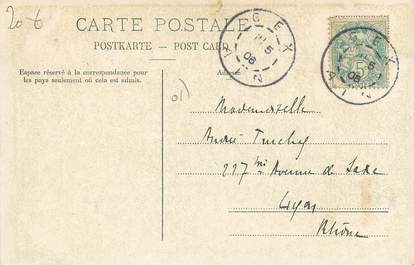 20 €
CARTE POSTALE
POSTKARTE — POST CARD
Espace réservé à la correspondance pour
les pays seulement où cela est admis.
Adresse
GEX
5
06
AIN
GEX
5
06
AIN
5
01)
Mademoiselle
André
227 bis Avenue de Saxe
Lyon
Rhône